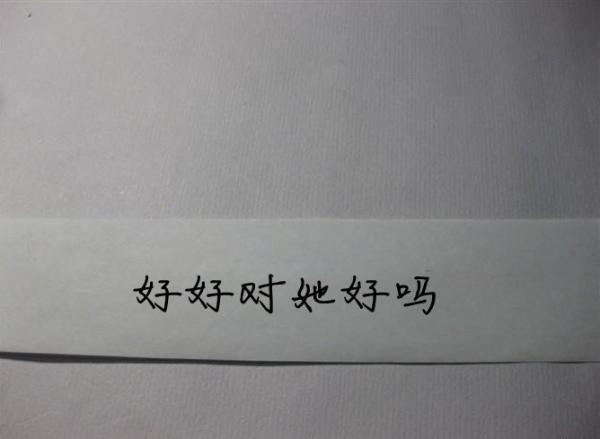 好好对她好吗